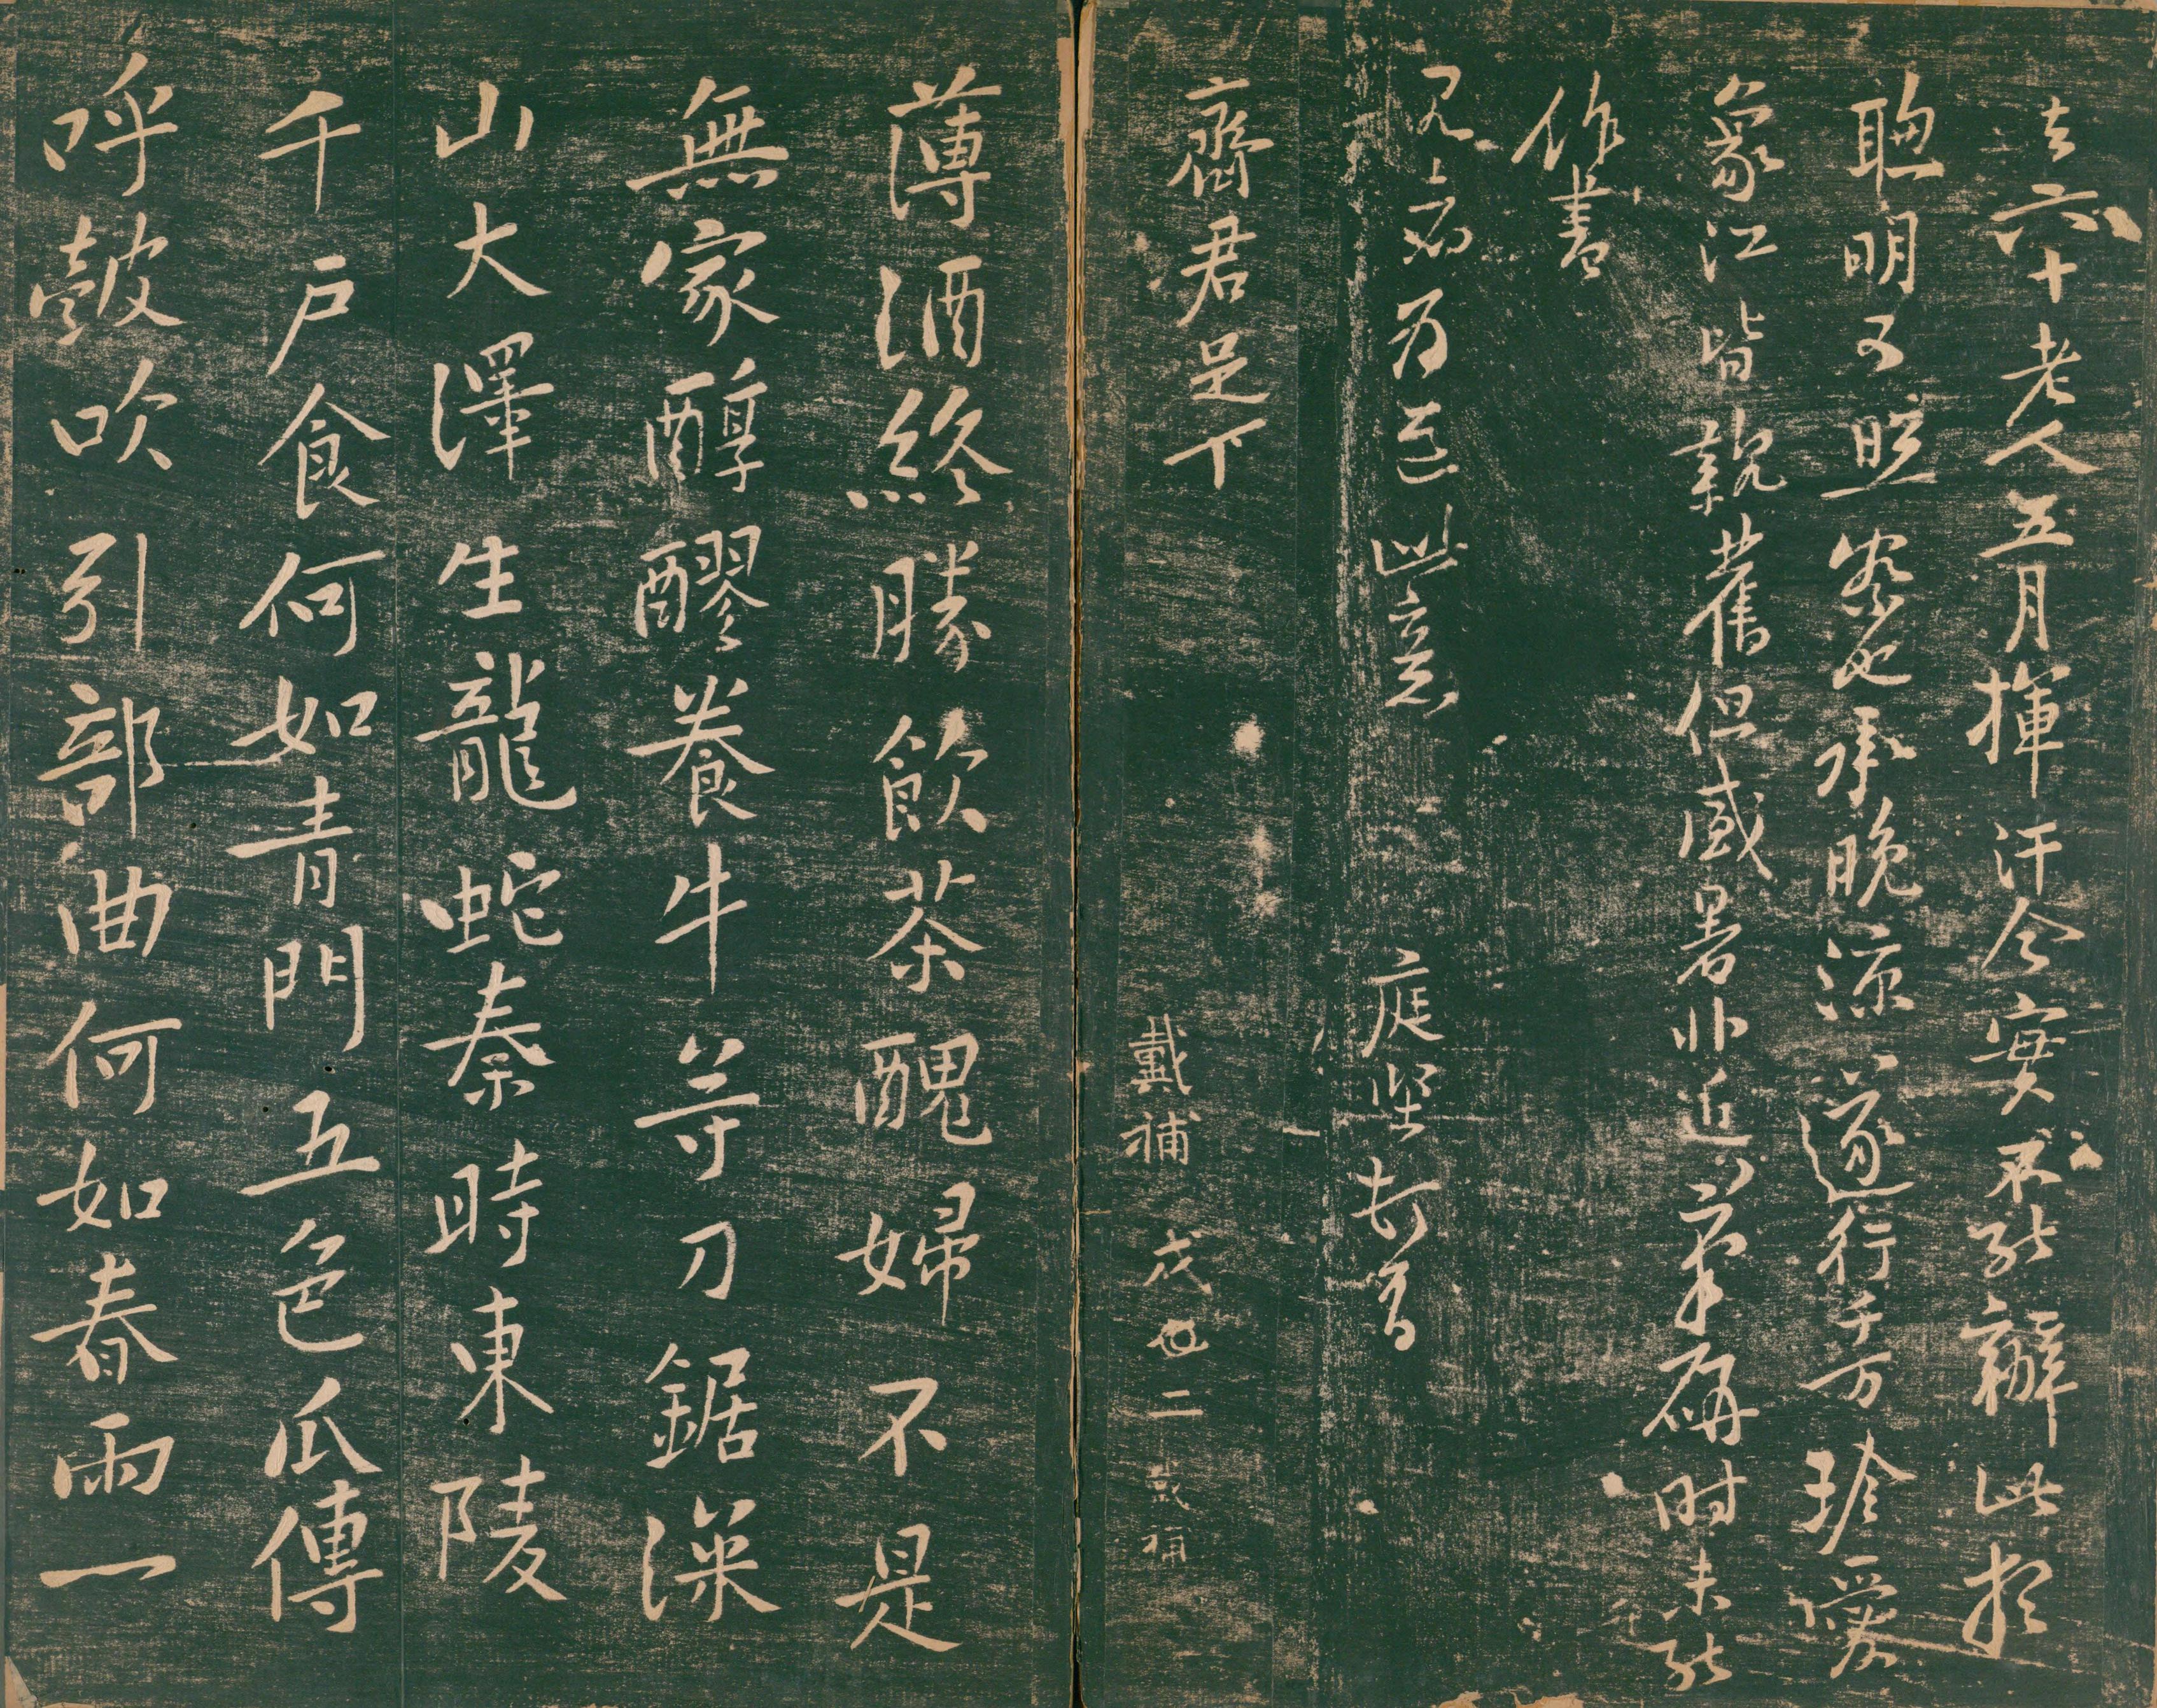 去六十老人五月揮汗今實不能辦此想
聰明可照察也承晚涼遂行千万珍愛
象江皆親舊但盛暑非近筆研時未能
作書
見者為道此意 庭堅頓首
齋君足下
戴補 戌 二 戴補
薄酒終勝飲茶醜婦不是
無家醇醪養牛等刀鋸深
山大澤生龍蛇秦時東陵
千戶食何如青門五色瓜傳
呼皷吹引部曲何如春雨一